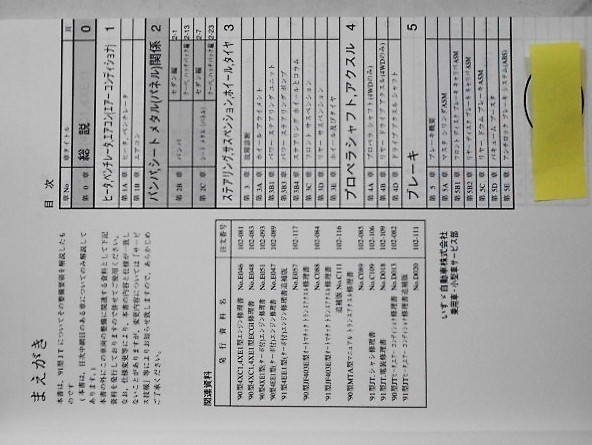 まえがき
本書は、'91型JTについてその整備要領を説明したも
のです。
(本書は、目次中網目のある章についてのみ解説して
あります。)
本書の外にこの車両の整備に関連する資料として下記
資料を発行しておりますので併せてご使用ください。
なお、仕様変更等により、本書の内容と仕様が一致し
ないことがありますが、変更内容については「サービ
ス技報」等によりお知らせ致しますので、あらかじめ
ご了承ください。
関連資料
発行資料名 注文番号
'90型4XC1,4XE1型エンジン修理書 No.E046 102-081
'90型4XC1,4XE1型ECGI修理書 No.E048 102-083
'90型4XE1型(ターボ付)エンジン修理書 No.E051 102-093
'90型4EE1型(ターボ付)エンジン修理書 No.E047 102-089
'91型4EE1型(ターボ付)エンジン修理書追補版 No.E057 102-117
'90型JF403E型オートマチック トランスアクスル修理書 No.C088 102-084
'91型JF403E型オートマチック トランスアクスル修理書
追補版 No.C111 102-116
'90型MTA型マニュアル トランスアクスル修理書 No.C089 102-085
'91型JT:シャシ修理書 No.C109 102-106
'91型JT:電装修理書 No.D018 102-109
'90型JTヒータ,エアー コンディション修理書 No.D013 102-082
'91型JTヒータ,エアー コンディション修理書追補版 No.D020 102-111
いすゞ自動車株式会社
乗用車・小型車サービス部
目次
章No 章タイトル 頁
第0章 総説 0
ヒータ,ベンチレータ,エアコン(エアーコンディショナ) 1
第1A章 ヒータ,ベンチレータ
第1B章 エアコン
バンパ,シートメタル(パネル)関係 2
第2B章 バンパ セダン編 2-1
クーペ,ハッチバック編 2-13
第2C章 シートメタル(パネル) セダン編 2-7
クーペ,ハッチバック編 2-23
ステアリング,サスペンション,ホイール,タイヤ 3
第3章 故障診断
第3A章 ホイール アライメント
第3B1章 パワー ステアリング ユニット
第3B3章 パワー ステアリング ポンプ
第3B4章 ステアリング ホイールとコラム
第3C章 フロント サスペンション
第3D章 リヤー サスペンション
第3E章 ホイール及びタイヤ
プロペラシャフト,アクスル 4
第4A章 プロペラ シャフト(4WDのみ)
第4B章 リヤー ドライブ アクスル(4WDのみ)
第4D章 ドライブ アクスル シャフト
ブレーキ 5
第5章 ブレーキ概要
第5A章 マスタ シリンダASM
第5B1章 フロントディスク ブレーキ キャリパASM
第5B2章 リヤーディスク ブレーキ キャリパASM
第5C章 リヤー ドラム ブレーキASM
第5D章 バキューム ブースタ
第5E章 アンチロック ブレーキ システム(ABS)